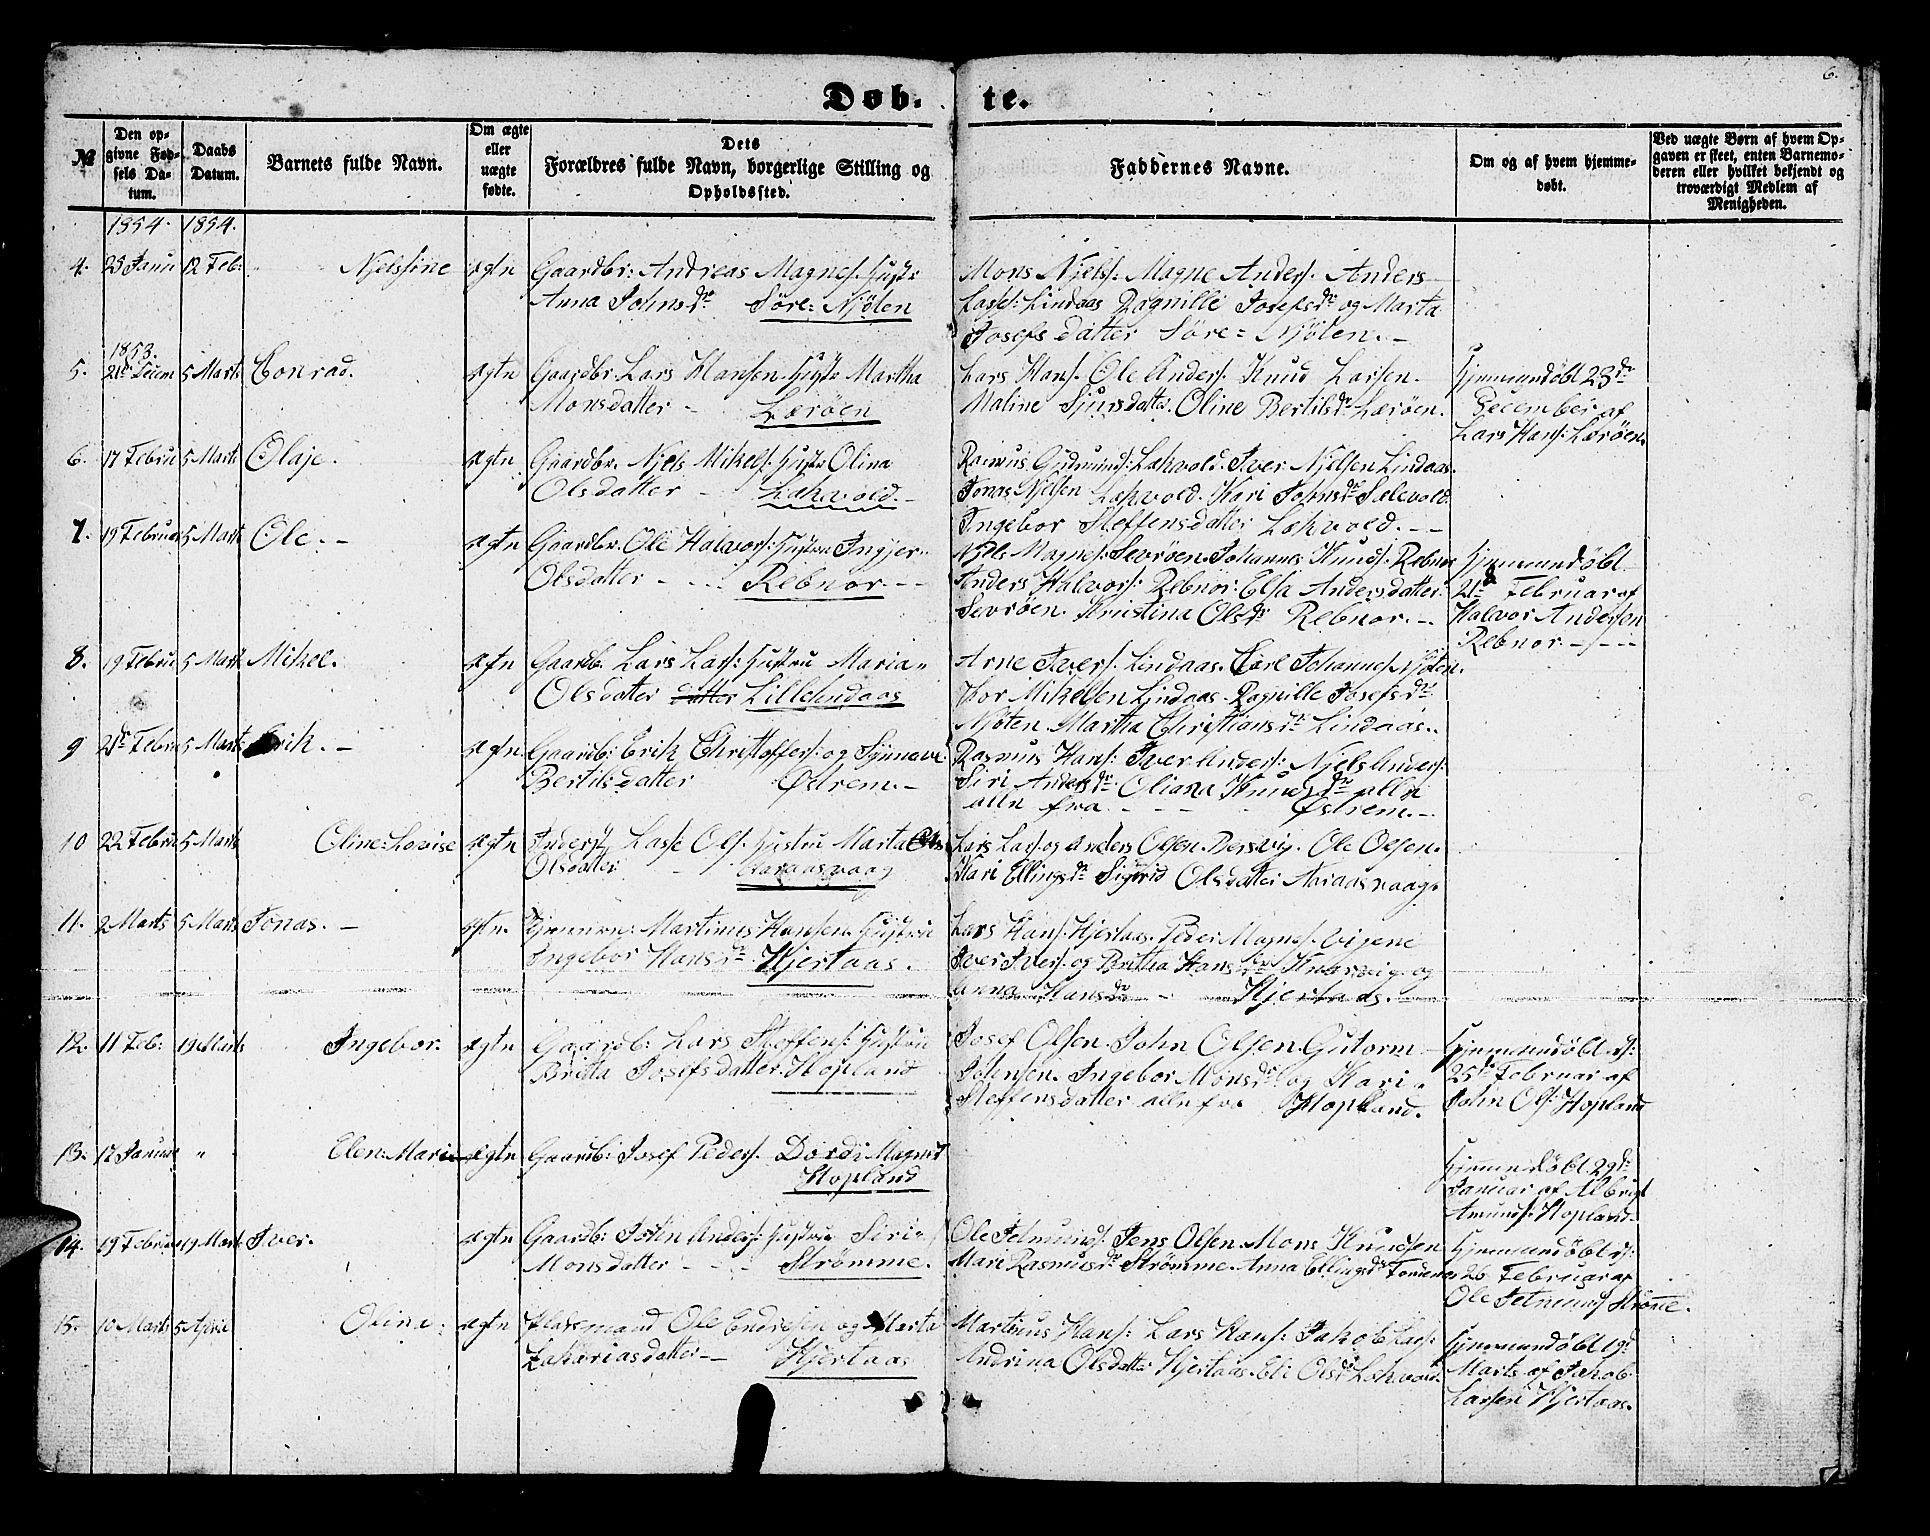 6.
Døb- te.
№
Den op-
givne Fød-
sels Da-
tum.
Daabs
Datum.
Barnets fulde Navn.
Om ægte
eller
uægte
fødte.
Dets
Forældres fulde Navn, borgerlige Stilling og
Opholdssted.
Faddernes Navne.
Om og af hvem hjemme-
døbt.
Ved uægte Børn af hvem Op-
gaven er skeet, enten Barnemo-
deren eller hvilket bekjendt og
troværdigt Medlem af
Menigheden.
1854. 1854.
4. 25 Janu 12 Feb: " Njelssine ægtn Gaardbr: Andreas Magnes. Hustr
Anna Johns dr Søre=Njöten
Mons Njels: Magne Anders. Anders
Lasse: Lindaas Ragnille Josefs dr og Marta
Josefs datter Søre=Njöten. -
1853.
5. 21de Decem 5 Mart: Conrad. ægtn Gaardbr. Lars Hansen. Hustr Martha
Monsdatter - Lærøen
Lars Hans. Ole Anders. Knud Larsen.
Maline Sjursdatter. Oline Bertils dr Lærøen.
Hjemmedøbt 23de
December af
Lars Hans: Lærøen.
6. 17 Febru 5 Mart: Olaje. ægtn. Gaardbr. Njels Mikels. Hustr Olina
Olsdatter - Læhvold. -
Rasmus Gudmunds: Læhvold. Iver Njelsen Lindaas.
Jonas Njelsen Læhvold. Kari Johns dr Sælevold.
Ingebor Steffensdatter Læhvold. - -
7. 19 Februar 5 Mart Ole. - ægtn Gaardbr. Ole Halvors: Hustru Ingjer..
Olsdatter - - - Rebnor. - -
Njels Magnes: Sevrøen. Johannes Knuds. Rebnor
Anders Halvors: Rebnor: Elsa Andersdatter
Sevrøen. Kristina Ols dr Rebnor. -
Hjemmedøbt
21de Februar af
Halvor Andersen
Rebnor. - - -
8. 19 Febru 5 Mart Mikel. ægtn Gaardb. Lars Lars: Hustru Maria"
Olsdatter datter Lillelindaas
Arne Ivers. Lindaas. Carl Johannes Njöten.
Thor Mikelsen Lindaas. Ragnille Josefs dr
Njöten. Martha Christians dr Lindaas..
9 21de Febru 5 Marts Erik. - ægtn. Gaardb: Erik Christoffers: og Synneve
Bertils datter Østrem. -
Rasmus Hans: Iver Anders: Njels Anders:
Siri Anders dr Oliana Knuds dr alle
alle fra - - - Østrem. -
10 22 Febru 5 Marts Oline=Lovise ægtn Lasse Ols. Hustru Marta Ols
Olsdatter - Aaraasvaag
Lars Lars. og Anders Olsen. Dersvig. Ole Olsen.
Kari Ellings dr Sigrid Olsdatter Aaraasvaag.
11. 2 Marts 5 Marts Jonas. - ægtn. Martinus Hansen. Hustrue
Ingebor Hans dr Hjertaas.
Lars Hans: Hjertaas. Peder Magnes.
Iver Ivers. og Britha Hans dr Knarvig og
Anna Hans dr - Hjertaas.
12. 11 Feb: 19 Marts Ingebor. ægtn Gaardb: Lars Steffens: Hustrue
Britta Josefsdatter. Hopland
Josef Olsen. John Olsen. Gutorm
Johnsen. Ingebor Mons dr og Kari "
Steffensdatter alle fra Hopland.
Hjemmedøbt d:
25de Februar af
John Ols: Hopland
13. 17 Januar " Elen=Marie ægtn Gaardb: Josef Peders. Dordi Magnes
Hopland
Hjemmedøbt 29de
Januar af Albrigt
Amunds: Hopland.
14. 19 Februar 19 Marts Iver. ægtn Gaardb: Josten Anders: Hustru Siri "
Monsdatter - - - Strømme.
Ole Jetmunds. Jens Olsen. Mons Knudsen
Mari Rasmus dr Strømme. Anna Ellings dr Tondenes
Hjemmedøbt d:
26 Februar af
Ole Jetmunds Strømme.
15. 10 Marts 5 April Oline. ægtn Huusmand Ole Endresen og Marta
Zakariasdatter - Hjertaas
Martinus Hans: Lars Hans: Jakob Lars:
Andrina Olsdatter Hjertaas. Eli Ols dr Læhvold.
Hjemmedøbt 19de
Marts af Jakob
Larsen Hjertaas.